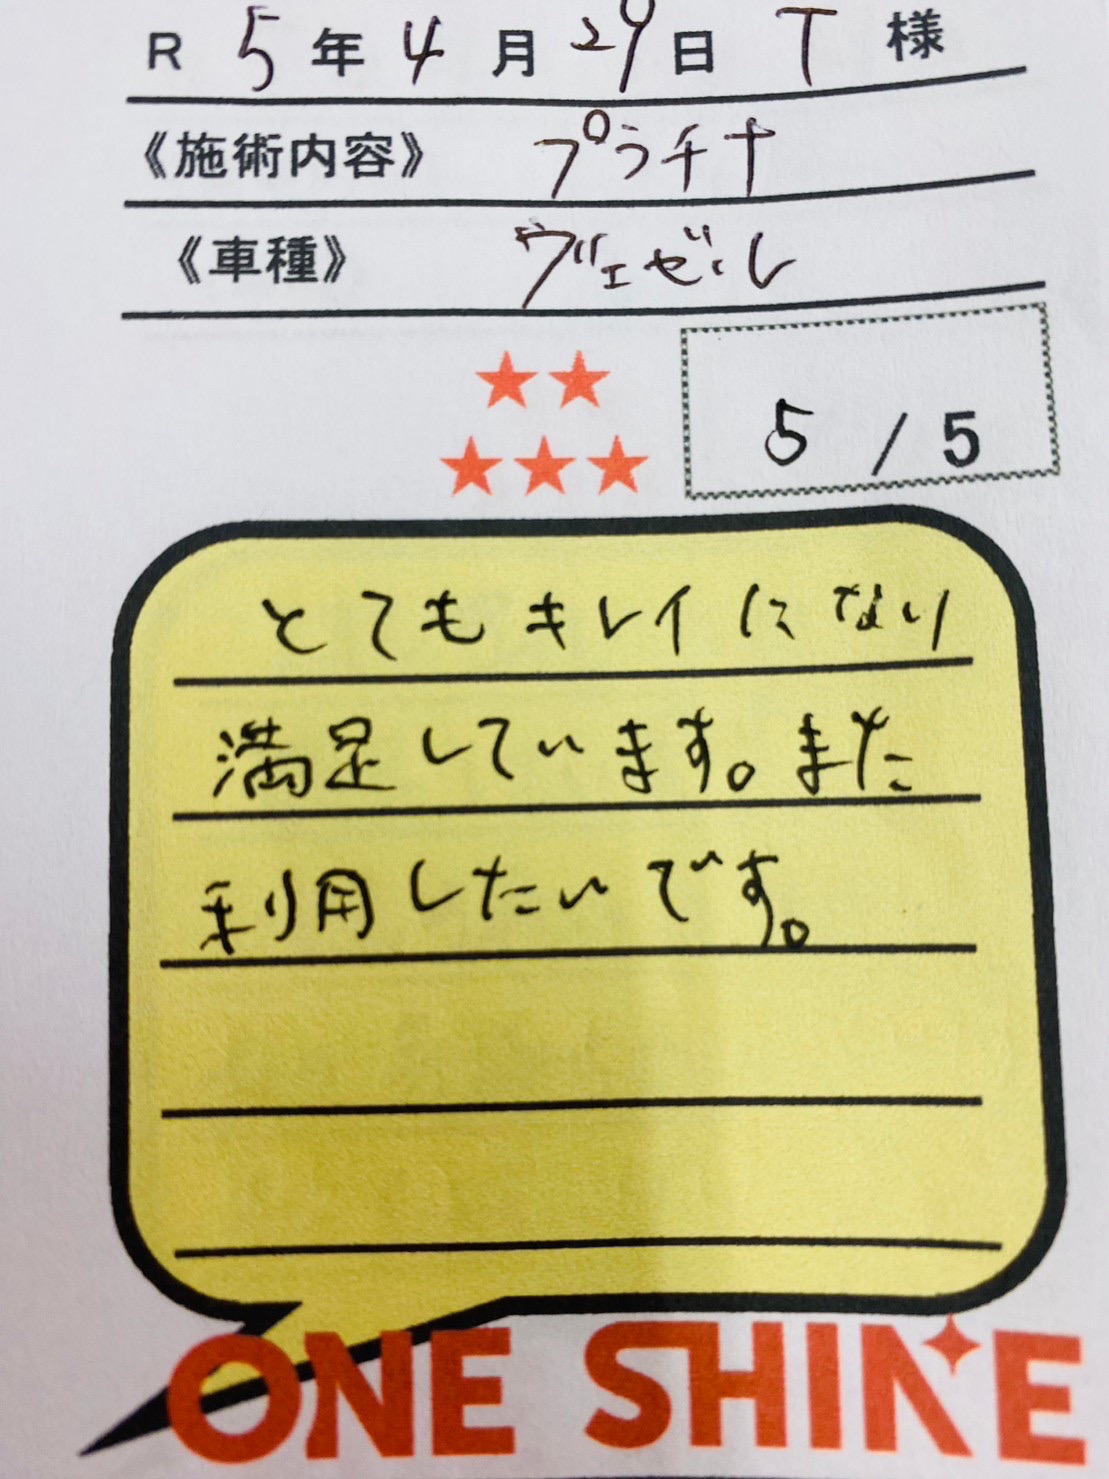 R 5年4月29日 T 様
《施術内容》 プラチナ
《車種》 ヴェゼル
5 / 5
とてもキレイになり
満足しています。また
利用したいです。
ONE SHINE